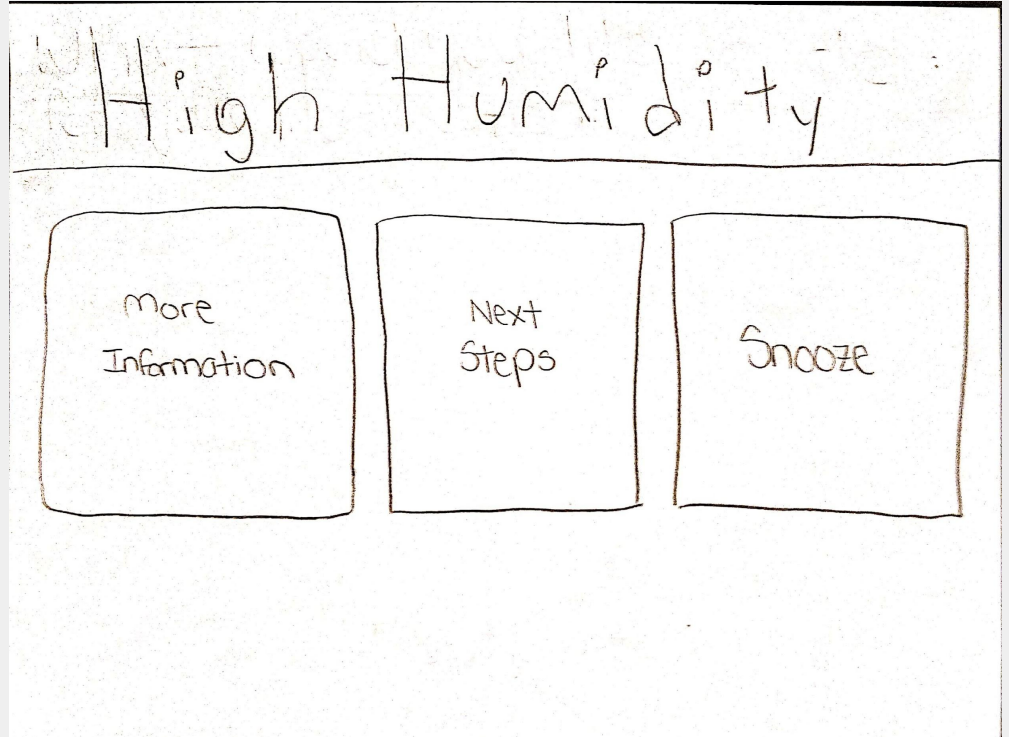 High Humidity
More
Information
Next
Steps
Snooze